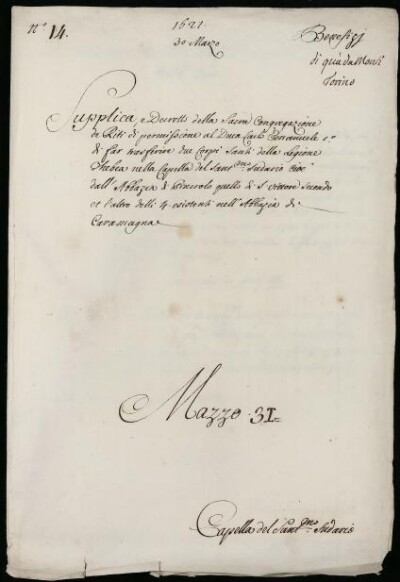 n.º 14.
1621
30 Marzo
Benefizj
di qua da Monti
Torino
Supplica, e Decreto della Sacra Congregazione
de Riti di permissione al Duca Carlo Emanuele 1.º
di far trasferire due Corpi Santi della Legione
Thebea nella Capella del Sant.mo Sudario cioè
dall'Abbazia di Pinerolo quello di S. Vittore Secondo
et l'altro delli 4 esistenti nell'Abbazia di
Caramagna
Mazzo 31
Capella del Sant.mo Sudario